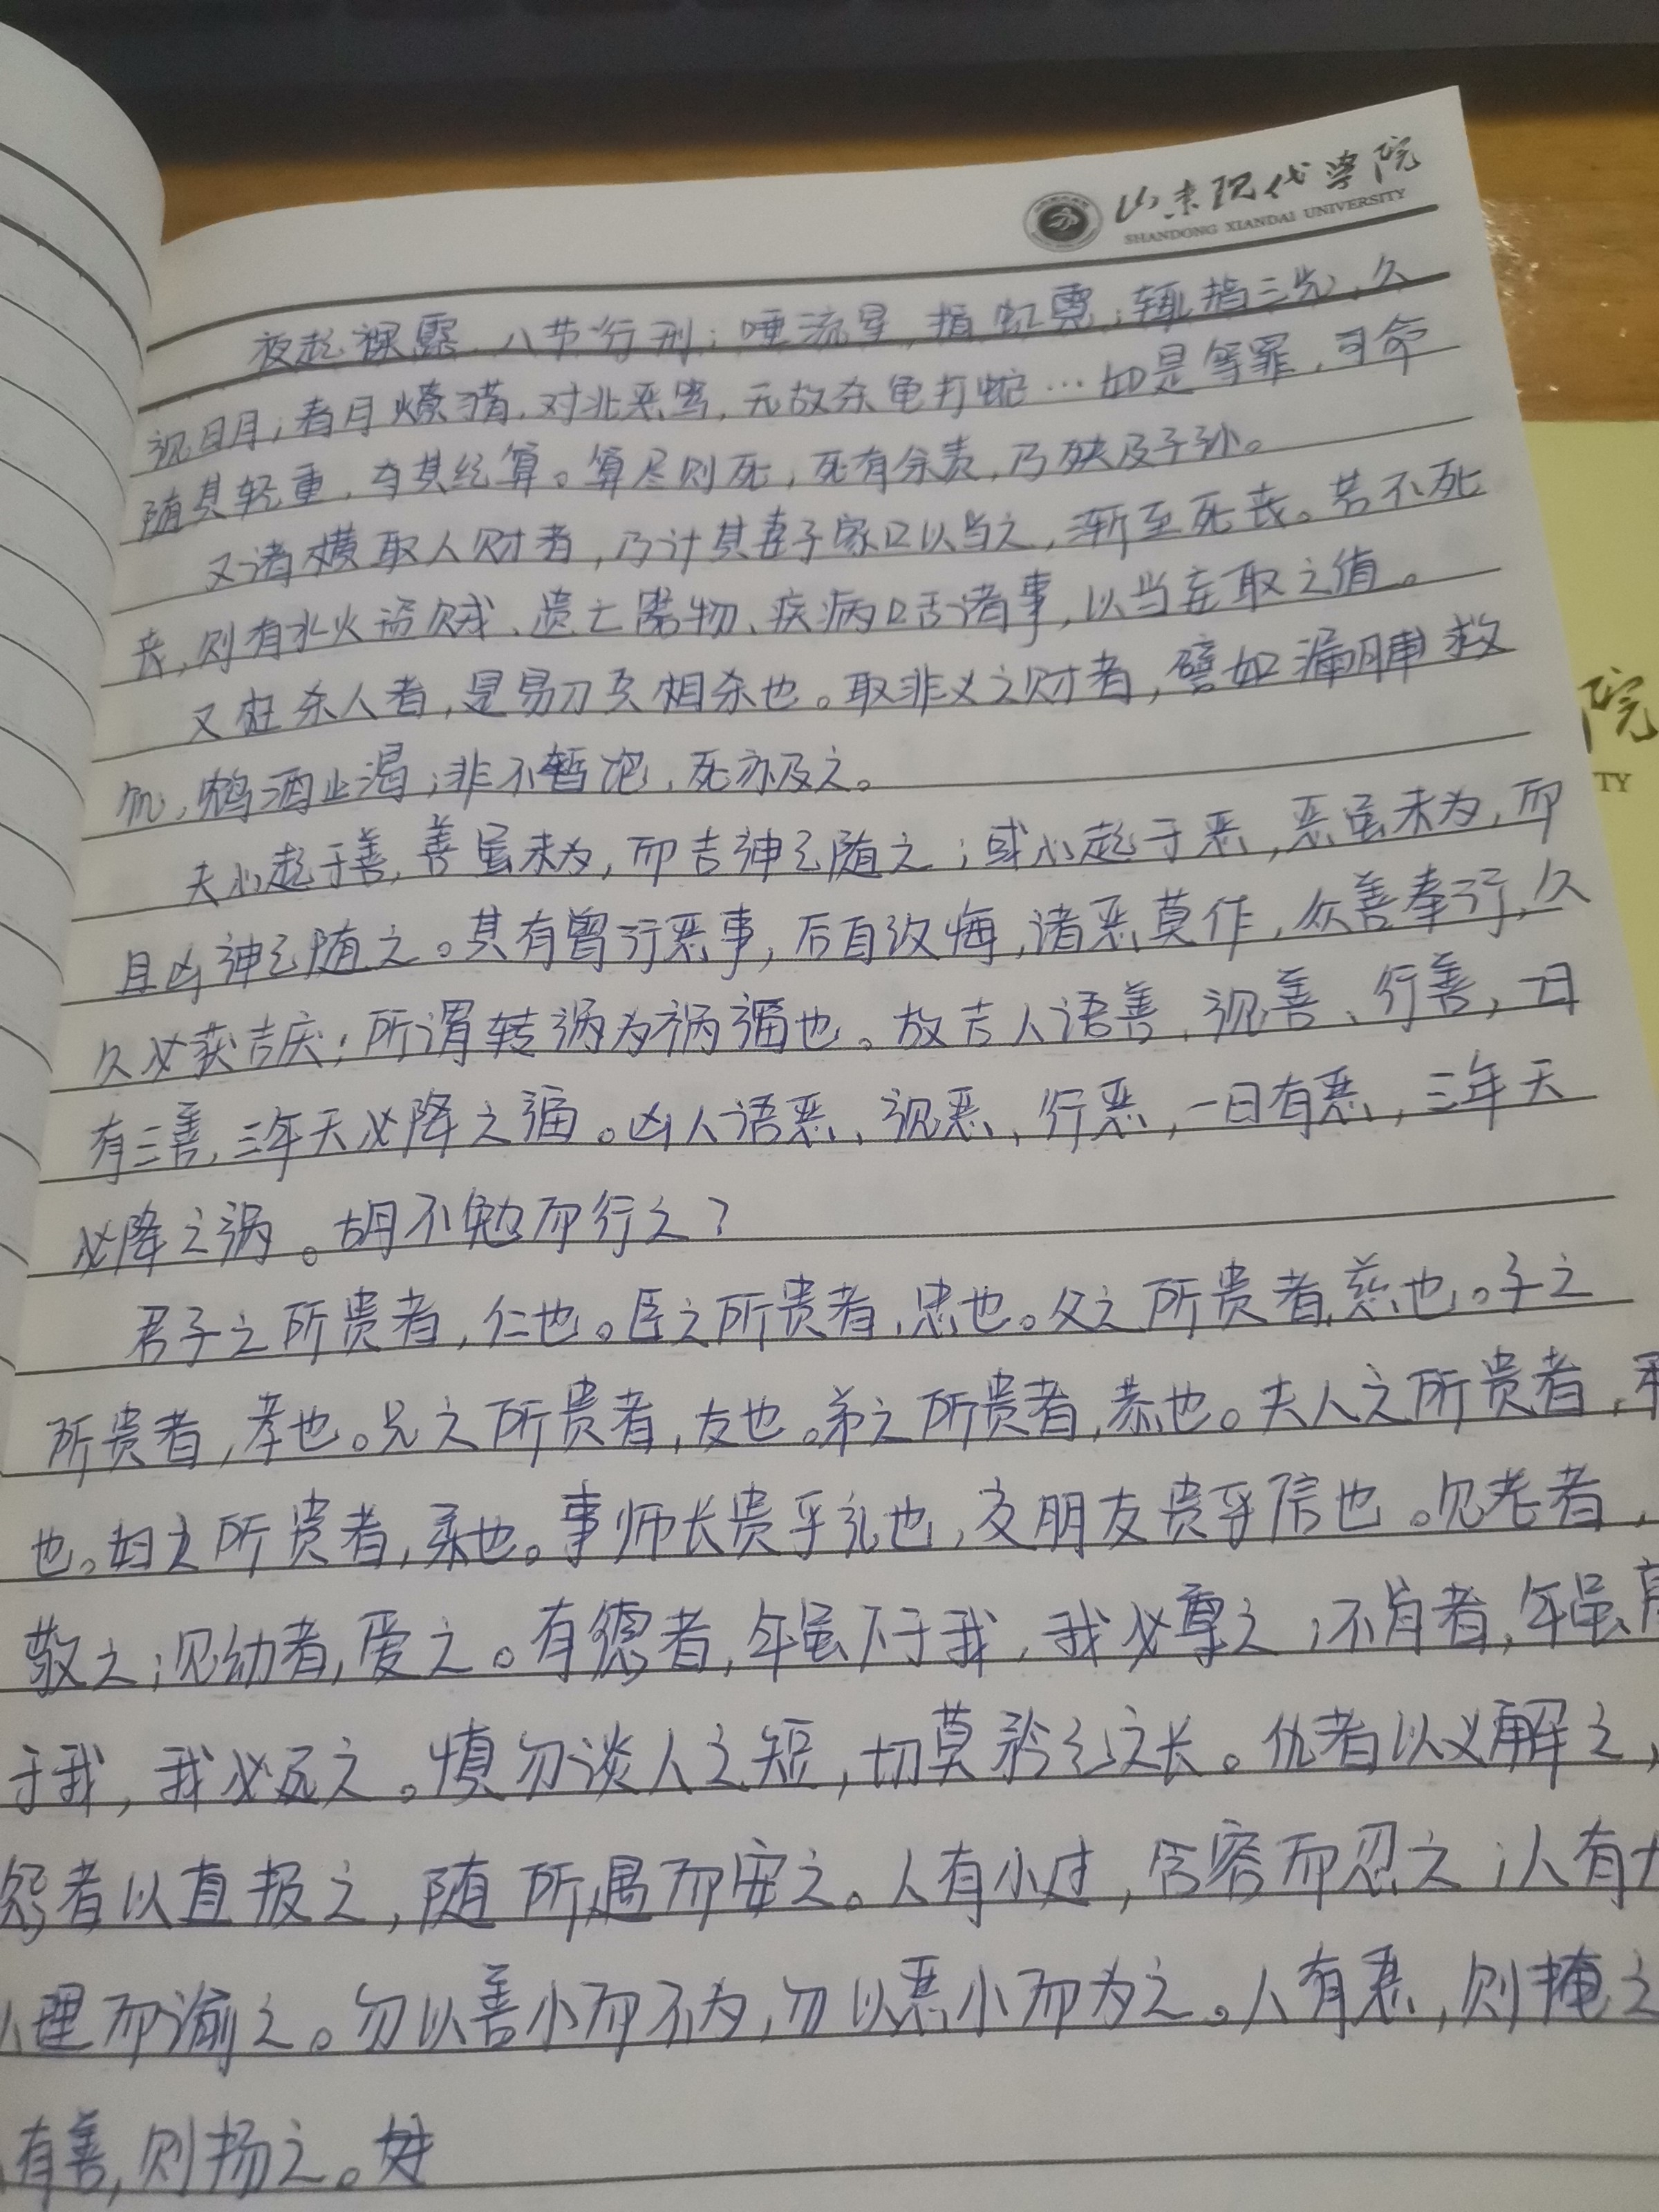 山东现代学院
SHANDONG XIANDAI UNIVERSITY
夜起裸露,八节行刑;唾流星,指虹霓;辄指三光,久
视日月;春月燎猎,对北恶骂,无故杀龟打蛇…如是等罪,司命
随其轻重,夺其纪算。算尽则死,死有余责,乃殃及子孙。
又诸横取人财者,乃计其妻子家口以当之,渐至死丧。若不死
丧,则有水火盗贼、遗亡器物、疾病口舌诸事,以当妄取之值。
又枉杀人者,是易刀兵相杀也。取非义之财者,譬如漏脯救
饥,鸩酒止渴;非不暂饱,死亦及之。
夫心起于善,善虽未为,而吉神已随之;或心起于恶,恶虽未为,而
且凶神已随之。其有曾行恶事,后自改悔,诸恶莫作,众善奉行,久
久必获吉庆;所谓转祸为祸福也。故吉人语善、视善、行善,一日
有三善,三年天必降之福。凶人语恶、视恶、行恶,一日有恶,三年天
必降之祸。胡不勉而行之?
君子之所贵者,仁也。臣之所贵者,忠也。父之所贵者,慈也。子之
所贵者,孝也。兄之所贵者,友也。弟之所贵者,恭也。夫人之所贵者,
也。妇之所贵者,柔也。事师长贵乎礼也,交朋友贵乎信也。见老者,
敬之;见幼者,爱之。有德者,年虽下于我,我必尊之;不肖者,年虽高
于我,我必远之。慎勿谈人之短,切莫矜己之长。仇者以义解之,
怨者以直报之,随所遇而安之。人有小过,含容而忍之;人有大
以理而谕之。勿以善小而不为,勿以恶小而为之。人有恶,则掩之
人有善,则扬之。
院
TY